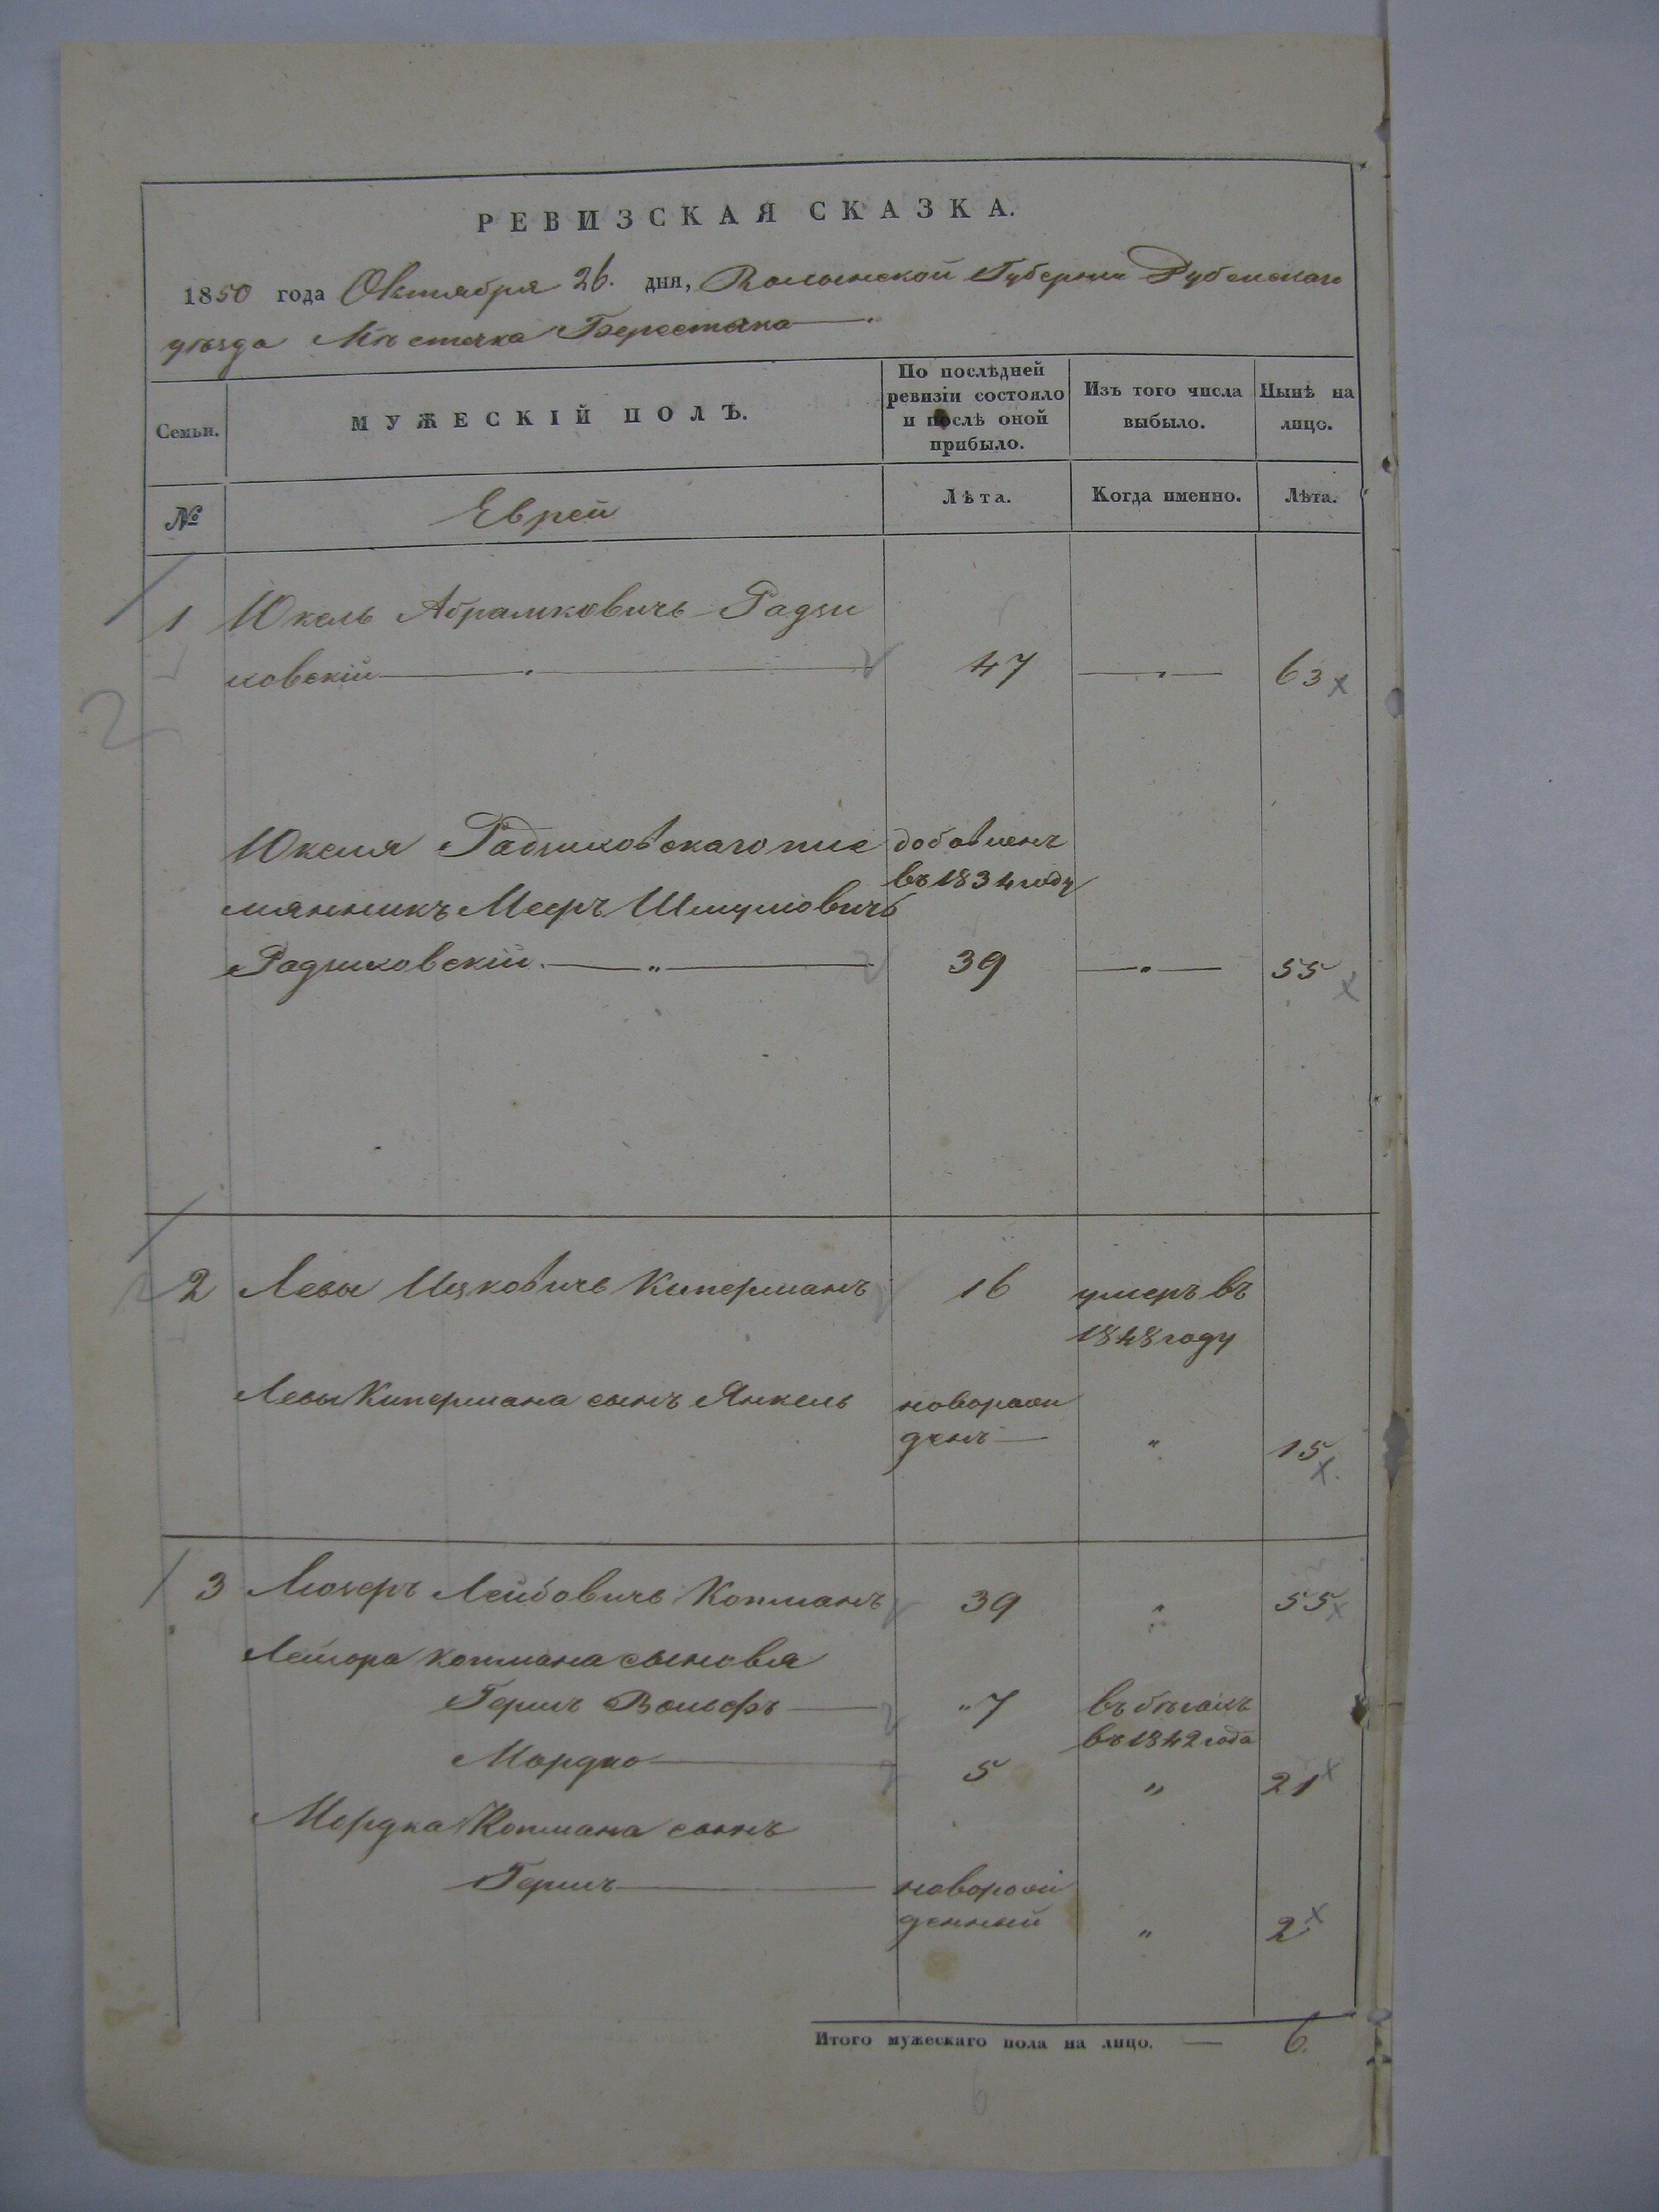 РЕВИЗСКАЯ СКАЗКА.
1850 года Октября 26. дня, Волынской Губернии Дубенскаго
уѣзда Мѣстечка Берестечка
Семьи.
МУЖЕСКІЙ ПОЛЪ.
По послѣдней
ревизіи состояло
и послѣ оной
прибыло.
Изъ того числа
выбыло.
Нынѣ на
лицо.
№
Еврей
Лѣта.
Когда именно.
Лѣта.
1 Юкель Абрамковичъ Радзи
ковскій 47 63
Юкеля Радзиковскаго пле добавленъ
въ 1834 году
мянникъ Мееръ Шмулёвичъ
Радзиковскій 39 55
2 Ицковичъ Киперманъ 16 умеръ въ
1848 году
Кипермана сынъ Янкель новорож
денъ " 15
3 Лейбовичъ Копманъ 39 " 55
Копмана сыновья
Гершъ Вольфъ " 7 въ бѣгахъ
въ 1842 года
Мордко 5 " 21
Мордка Копмана сынъ
Гершъ новорож
денный " 2
Итого мужескаго пола на лицо. — 6.
6